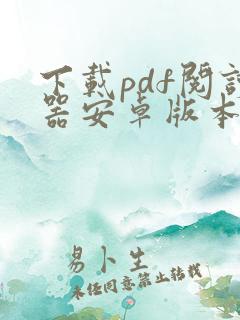 下載pdf閱讀
器安卓版本
易卜生
未经同意禁止转载